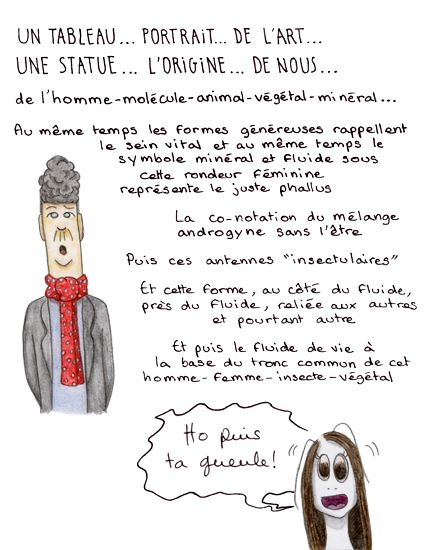 UN TABLEAU... PORTRAIT... DE L'ART...
UNE STATUE... L'ORIGINE... DE NOUS...
de l'homme-molécule-animal-végétal-minéral...
Au même temps les formes généreuses rappellent
le sein vital et au même temps le
symbole minéral et fluide sous
cette rondeur féminine
représente le juste phallus
La co-notation du mélange
androgyne sans l'être
Puis ces antennes "insectulaires"
Et cette forme, au côté du fluide,
près du fluide, reliée aux autres
et pourtant autre
Et puis le fluide de vie à
la base du tronc commun de cet
homme-femme-insecte-végétal
Ho puis
ta gueule!